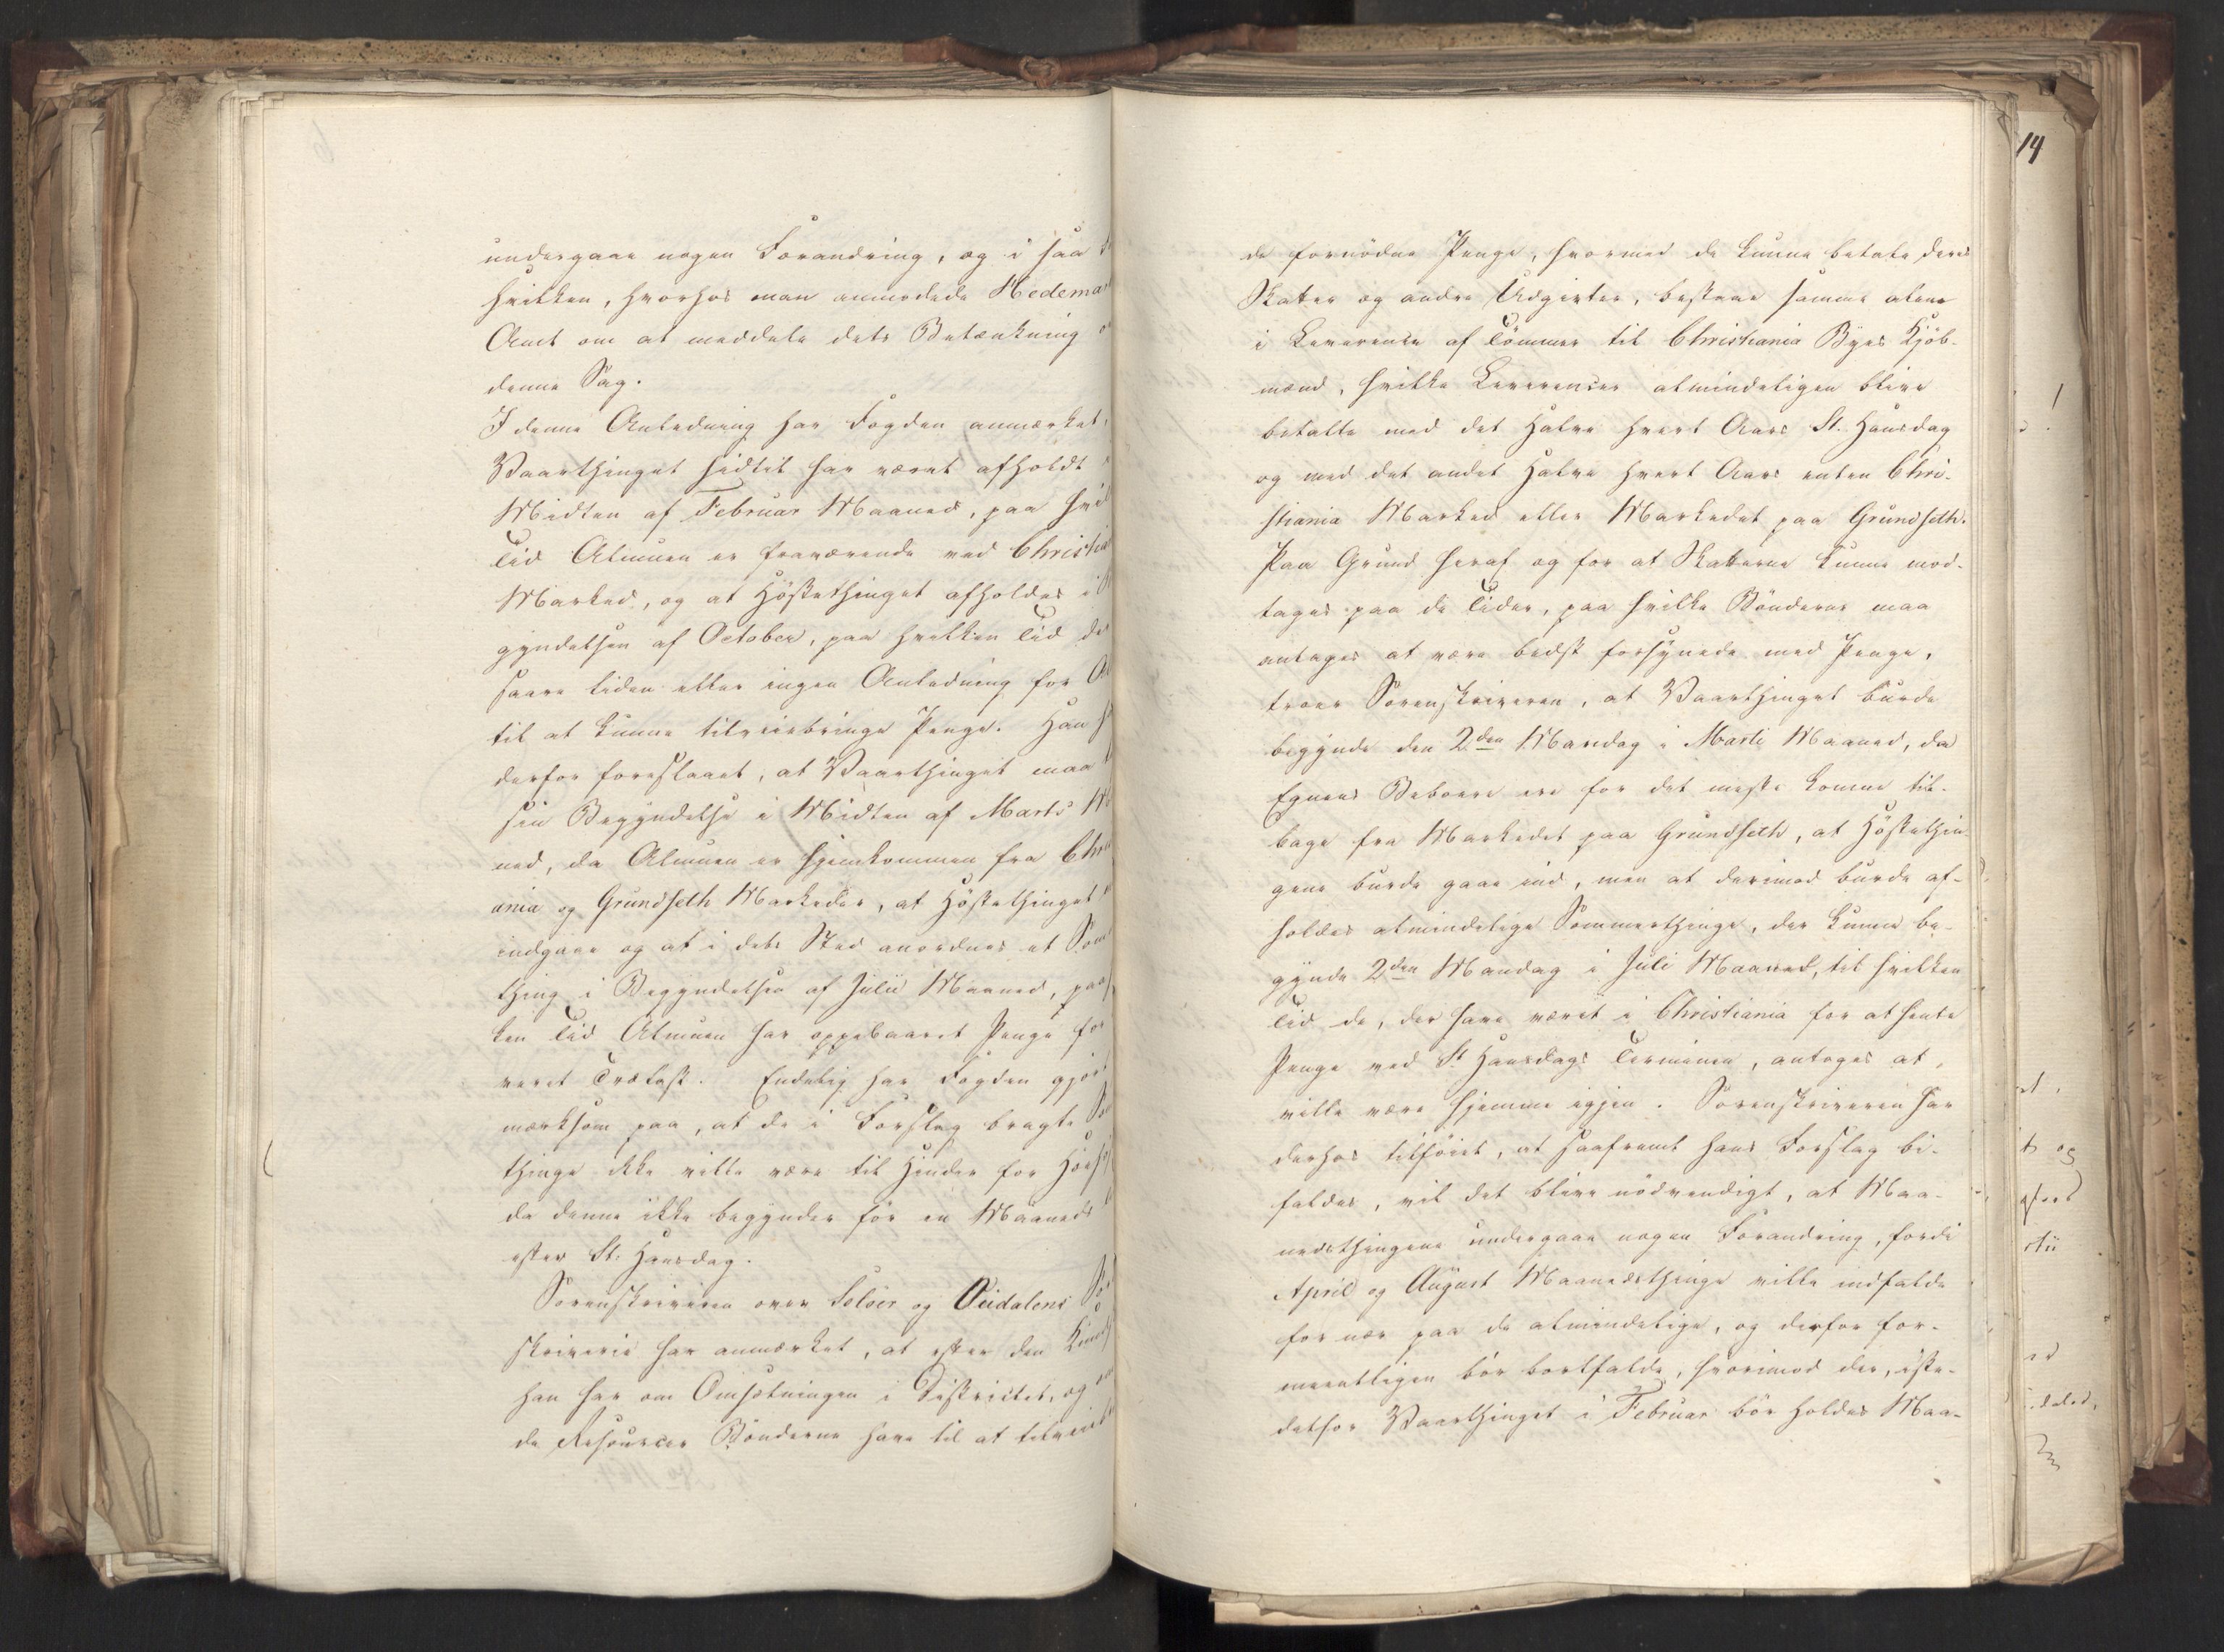 undergaae nogen Forandring, og i saa
hvilken, hvorhos man anmodede Hedema
Amt om at meddele dets Betænkning
denne Sag.
I denne Anledning har Fogden anmærket,
Vaarthinget hidtil har været afholdt
Midten af Februar Maaned, paa hvil
Tid Almuen er fraværende ved Christia
Marked, og at Höstethinget afholdes i
gyndelsen af October, paa hvilken Tid de
saare liden eller ingen Anledning for Al
til at kunne tilveiebringe Penge. Han
derfor foreslaaet, at Vaarthinget maa
sin Begyndelse i Midten af Marts M
ned, da Almuen er hjemkommen fra Chri
ania og Grundseth Markeder, at Höstethinget
indgaae og at i dets Sted anordnes et Som
thing i Begyndelsen af Julii Maaned, paa
ken Tid Almuen har oppebaaret Penge for
veret Trælast. Endelig har Fogden gjör
mærksom paa, at de i Forslag bragte Som
thinge ikke ville være til Hinder for Höe
da denne ikke begynder för en Maaneds
efter St. Hansdag.
Sorenskriveren over Soløer og Oudalens So
skriverie har anmærket, at efter den Kund
han har om Omsætningen i Districtet, og
de Resourcer Bönderne have til at tilveie
14
de fornödne Penge, hvormed de kunne betale deres
Skatter og andre Udgivter, bestaae samme alene
i Leverence af Tömmer til Christiania Byes Kjöb-
mænd, hvilke Leverencer almindeligen blive
betalte med det Halve hvert Aars St. Hansdag
og med det andet Halve hvert Aars enten Chri-
stiania Marked eller Markedet paa Grundseth.
Paa Grund heraf og for at Skatterne kunne mod-
tages paa de Tider, paa hvilke Bönderne maa
antages at være bedst forsynede med Penge,
troer Sorenskriveren, at Vaarthinget burde
begynde den 2den Mandag i Marti Maaned, da
Egnens Beboere ere for det meste komne til-
bage fra Markedet paa Grundseth, at Höstethin-
gene burde gaae ind, men at derimod burde af-
holdes almindelige Sommerthinge, der kunne be-
gynde 2den Mandag i Juli Maaned, til hvilken
Tid de, der have været i Christiania for at hente
Penge ved St Hansdags Terminen, antages at
ville være hjemme igjen. Sorenskriveren har
derhos tilföiet, at saafremt hans Forslag bi-
faldes, vil det blive nödvendigt, at Maa-
nedsthingene undergaae nogen Forandring, fordi
April og August Maanedsthinge ville indfalde
for nær paa de almindelige, og derfor for-
meentligen bör bortfalde, hvorimod der, iste-
detfor Vaarthinget i Februar bör holdes Maa-